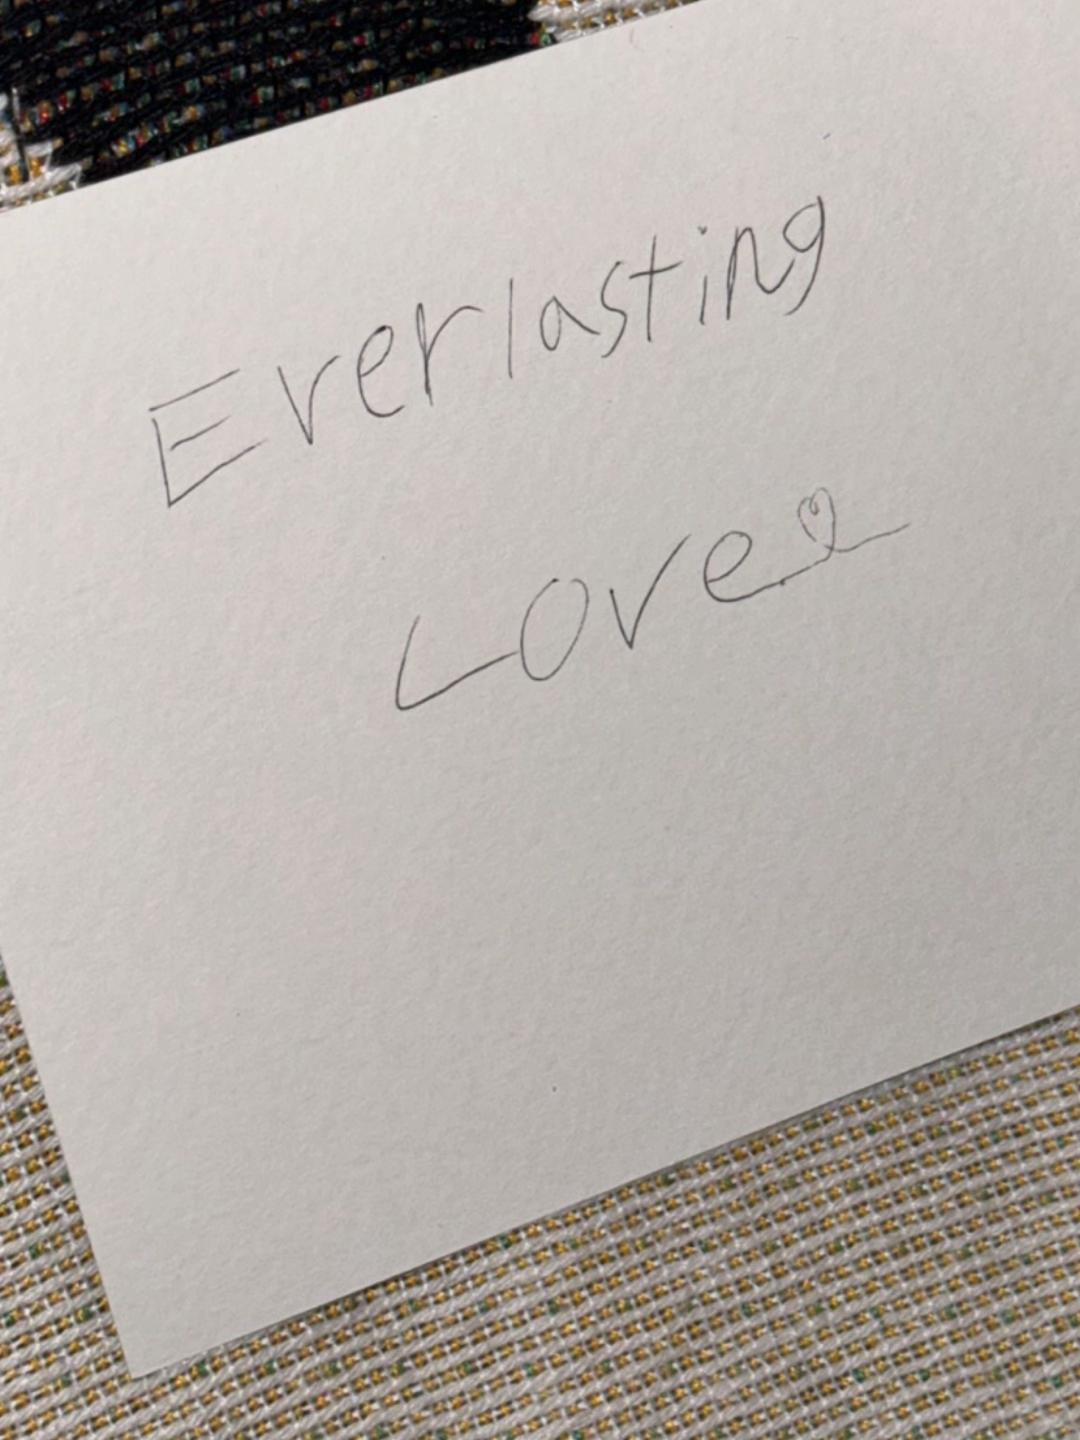 Everlasting
Love♡